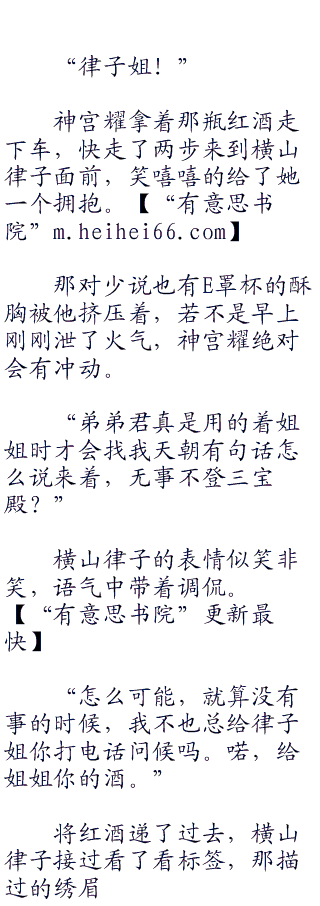 “律子姐！”
神宫耀拿着那瓶红酒走
下车，快走了两步来到横山
律子面前，笑嘻嘻的给了她
一个拥抱。【“有意思书
院”m.heihei66.com】
那对少说也有E罩杯的酥
胸被他挤压着，若不是早上
刚刚泄了火气，神宫耀绝对
会有冲动。
“弟弟君真是用的着姐
姐时才会找我天朝有句话怎
么说来着，无事不登三宝
殿？”
横山律子的表情似笑非
笑，语气中带着调侃。
【“有意思书院”更新最
快】
“怎么可能，就算没有
事的时候，我不也总给律子
姐你打电话问候吗。喏，给
姐姐你的酒。”
将红酒递了过去，横山
律子接过看了看标签，那描
过的绣眉